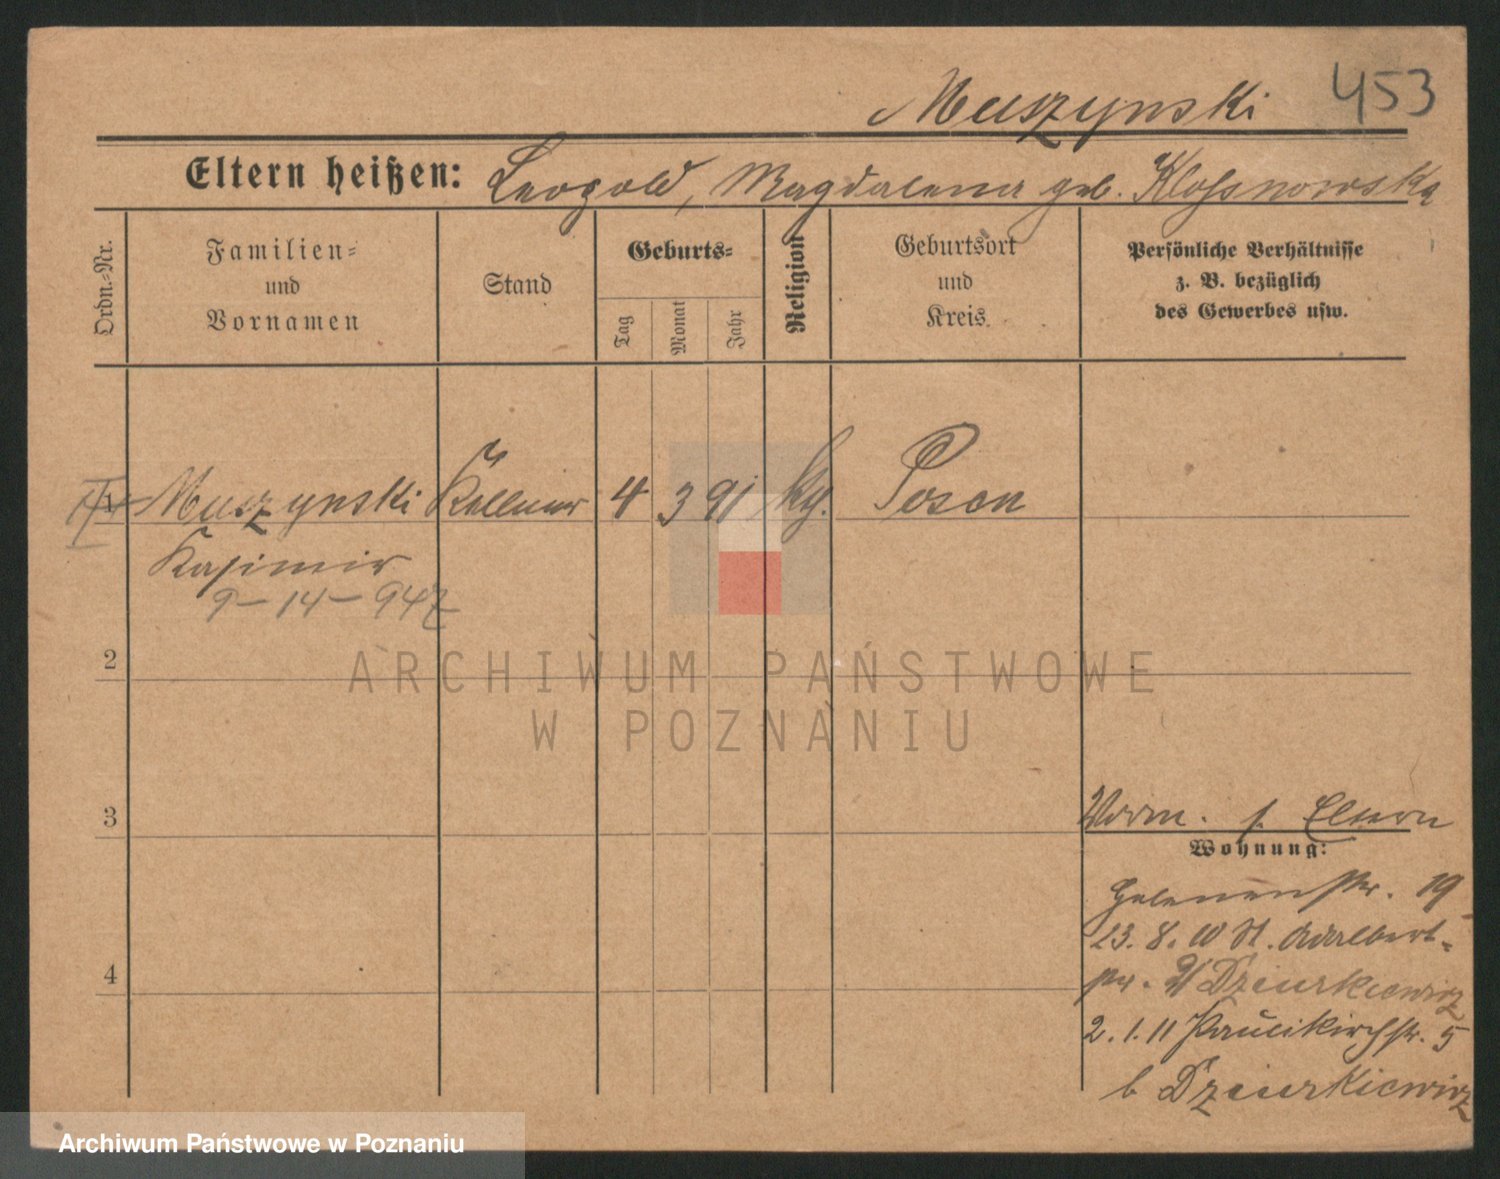 Muszynski 453
Eltern heißen: Leopold, Magdalena geb. Klossnowska
Ordn.-Nr.
Familien-
und
Vornamen
Stand
Geburts-
Tag
Monat
Jahr
Religion
Geburtsort
und
Kreis
Persönliche Verhältnisse
z. B. bezüglich
des Gewerbes usw.
1 Muszynski Kellner 4 3 91 Posen
Kasimir
9-14-94
2
ARCHIWUM PAŃSTWOWE
W POZNANIU
3
Eltern
Wohnung:
Helenenstr. 19
23. 8. 10 St. Adalbert-
str. Dziurkiewicz
4
2. 1. 11 Paulikirchstr. 5
b Dziurkiewicz
Archiwum Państwowe w Poznaniu